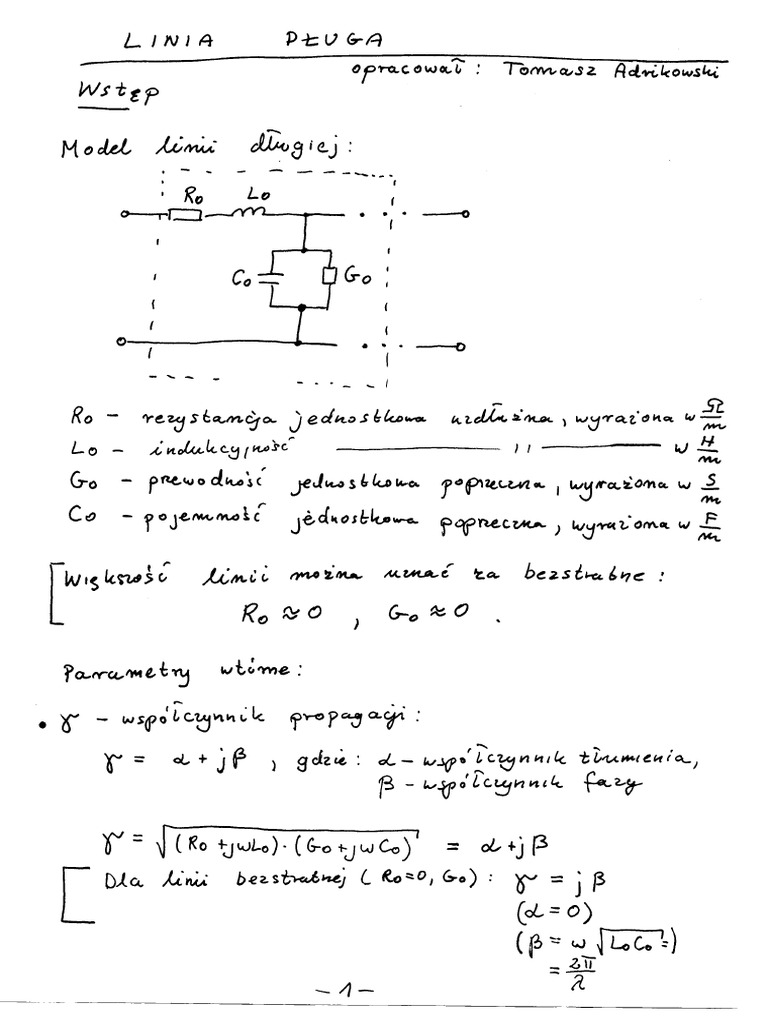 LINIA DŁUGA
opracował: Tomasz Adrikowski
Wstęp
Model linii długiej:
R₀ L₀
C₀ G₀
R₀ – rezystancja jednostkowa wzdłużna, wyrażona w Ω/m
L₀ – indukcyjność ——— 〃 ——— w H/m
G₀ – przewodność jednostkowa poprzeczna, wyrażona w S/m
C₀ – pojemność jednostkowa poprzeczna, wyrażona w F/m
Większość linii można uznać za bezstratne:
R₀ ≈ 0 , G₀ ≈ 0 .
Parametry wtórne:
• γ – współczynnik propagacji:
γ = α + jβ , gdzie: α – współczynnik tłumienia,
β – współczynnik fazy
γ = √((R₀ + jωL₀)·(G₀ + jωC₀)) = α + jβ
Dla linii bezstratnej (R₀=0, G₀): γ = jβ
(α = 0)
(β = ω √(L₀C₀) =)
= 2π/λ
– 1 –